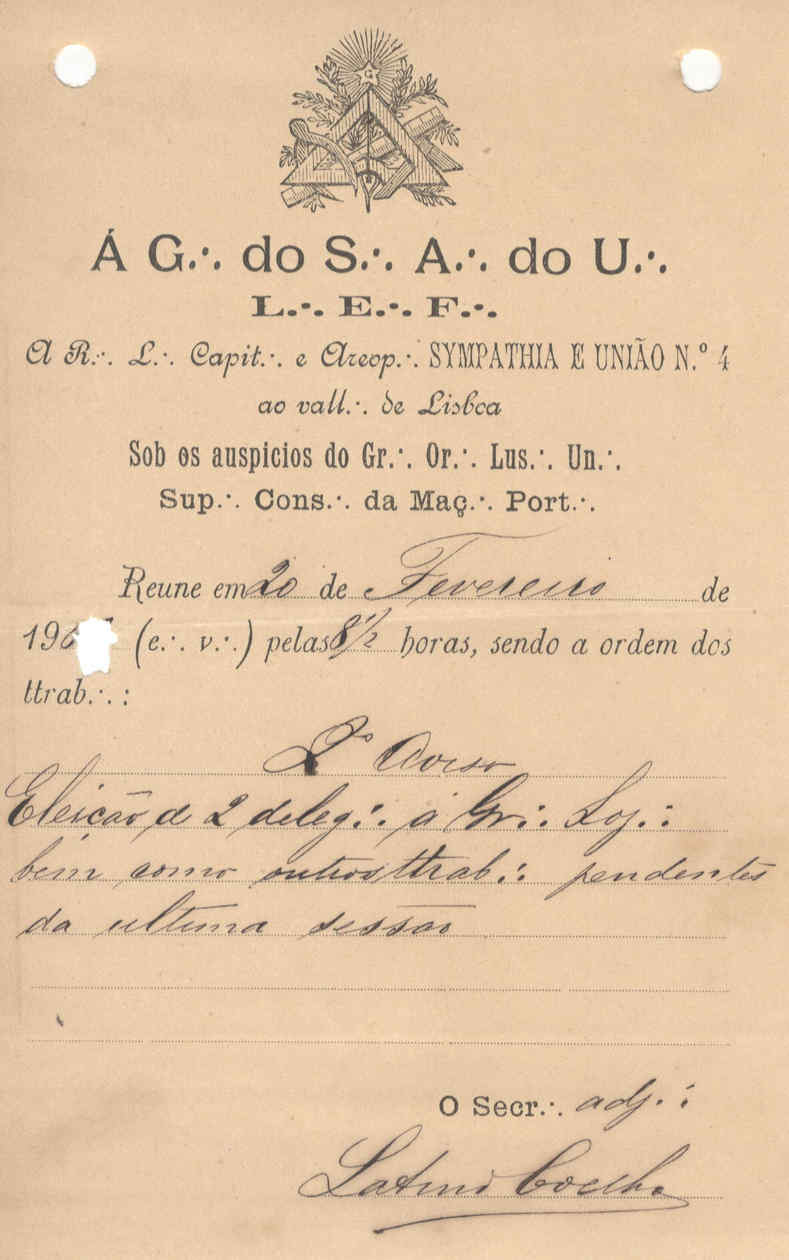 G
Á G.·. do S.·. A.·. do U.·.
L.·. E.·. F.·.
A R.·. L.·. Capit.·. e Areop.·. SYMPATHIA E UNIÃO N.º 4
ao vall.·. de Lisboa
Sob os auspicios do Gr.·. Or.·. Lus.·. Un.·.
Sup.·. Cons.·. da Maç.·. Port.·.
Reune em 20 de Fevereiro de
19 (e.·. v.·.) pelas 8 1/2 horas, sendo a ordem dos
ttrab.·. :
2º Aviso
Eleição de 2 deleg.·. á Gr.·. Loj.·.
bem como outros ttrab.·. pendentes
da ultima sessão
O Secr.·. adj.·.
Latino Coelho